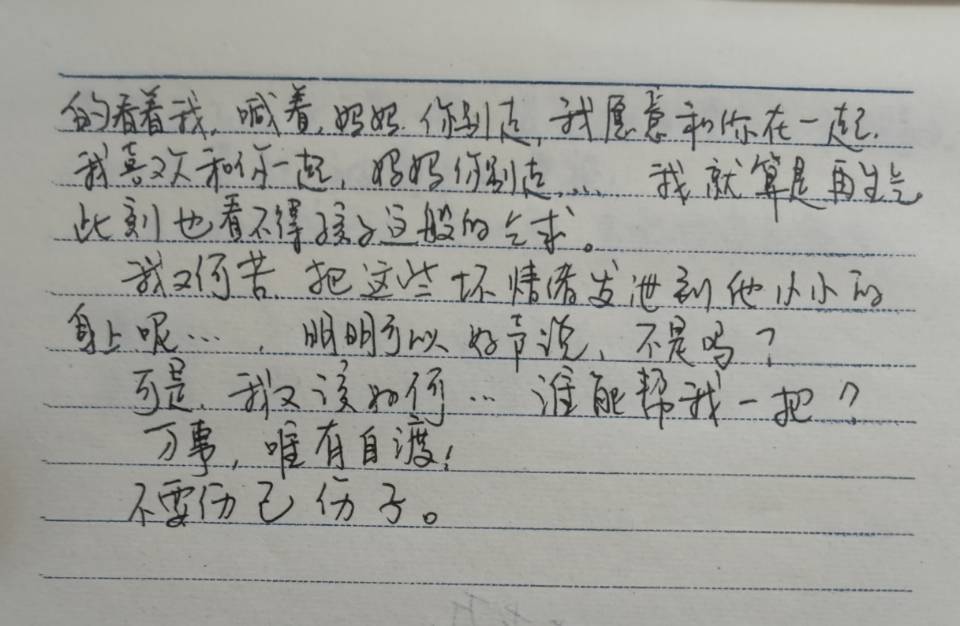 的看着我，喊着，妈妈你别走，我愿意和你在一起.
我喜欢和你一起，妈妈你别走.... 我就算是再生气
此刻也看不得孩子这般的乞求。
我又何苦把这些坏情绪发泄到他小小的
身上呢…，明明可以好声说，不是吗？
可是，我又该如何… 谁能帮我一把？
万事，唯有自渡！
不要伤己伤子。